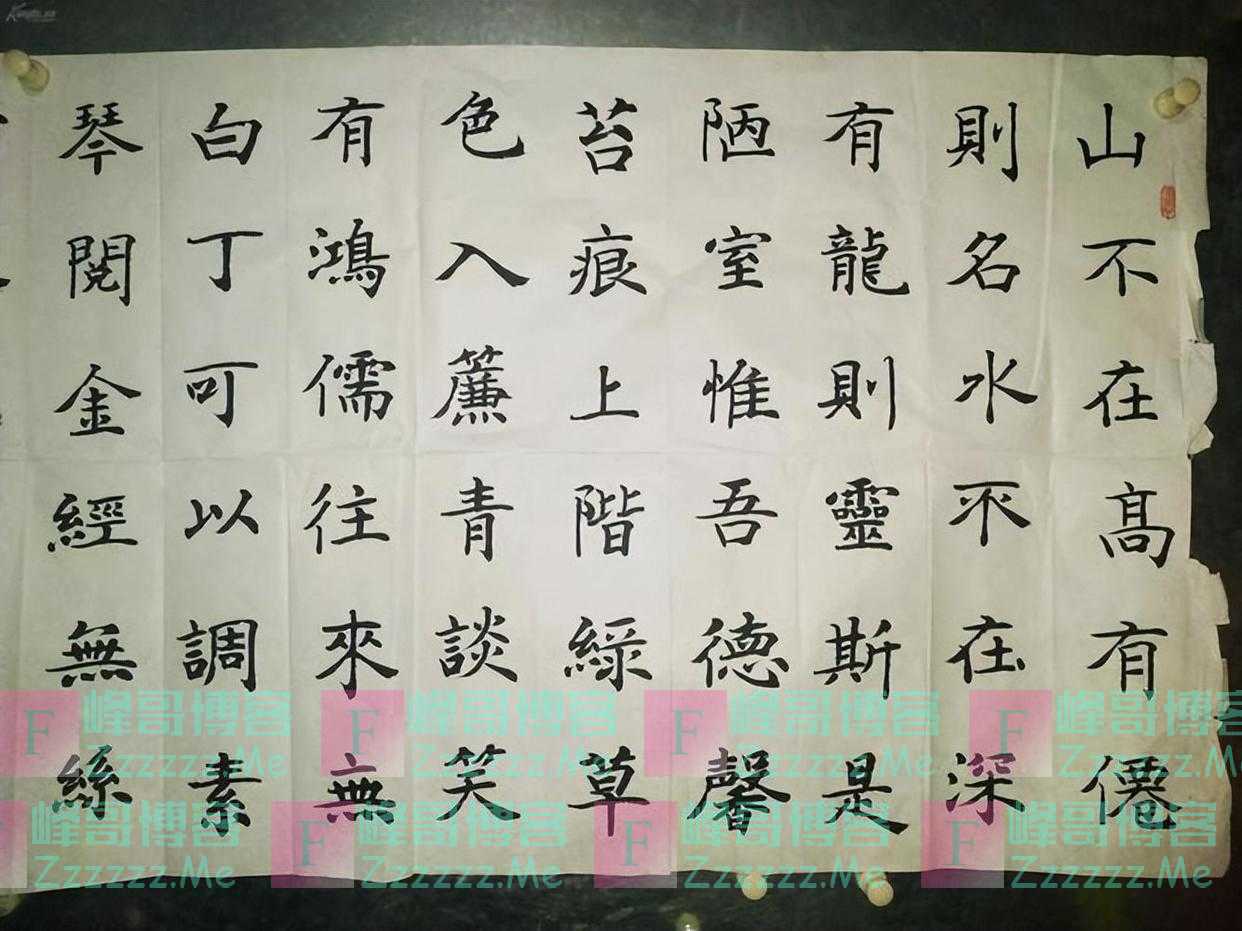 山不在高有僊
則名水不在深
有龍則靈斯是
陋室惟吾德馨
苔痕上階綠草
色入簾青談笑
有鴻儒往來無
白丁可以調素
琴閱金經無絲
F 峰哥博客 Zzzzzz.Me
F 峰哥博客 Zzzzzz.Me
F 峰哥博客 Zzzzzz.Me
F 峰哥博客 Zzzzzz.Me
峰哥博客 Zzzzzz.Me
F 峰哥博客 Zzzzzz.Me
F 峰哥博客 Zzzzzz.Me
F 峰哥博客 Zzzzzz.Me